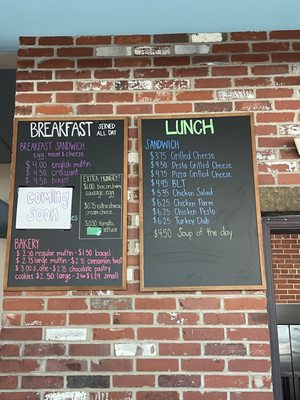 BREAKFAST SERVED ALL DAY
BREAKFAST SANDWICH
egg, meat & cheese
$ 4.00 english muffin
$ 4.50 croissant
$ 4.50 bagel
Coming
Soon
EXTRA HUNGRY?
$1.00 bacon, ham,
sausage,
egg
$0.75 extra cheese
cream cheese
$0.50 tomato
BAKERY
$ 2.50 regular muffin - $1.50 bagel
$ 2.75 large muffin - $2.75 cinnamon twist
$ 3.00 scone - $2.75 chocolate pastry
cookies $2.50 large - 2 for $1.09 small
LUNCH
SANDWICH
$ 3.75 Grilled Cheese
$ 4.50 Pesto Grilled Cheese
$ 4.75 Pizza Grilled Cheese
$ 4.95 BLT
$ 5.95 Chicken Salad
$ 6.25 Chicken Parm
$ 6.25 Chicken Pesto
$ 6.25 Turkey Club
$4.50 Soup of the day